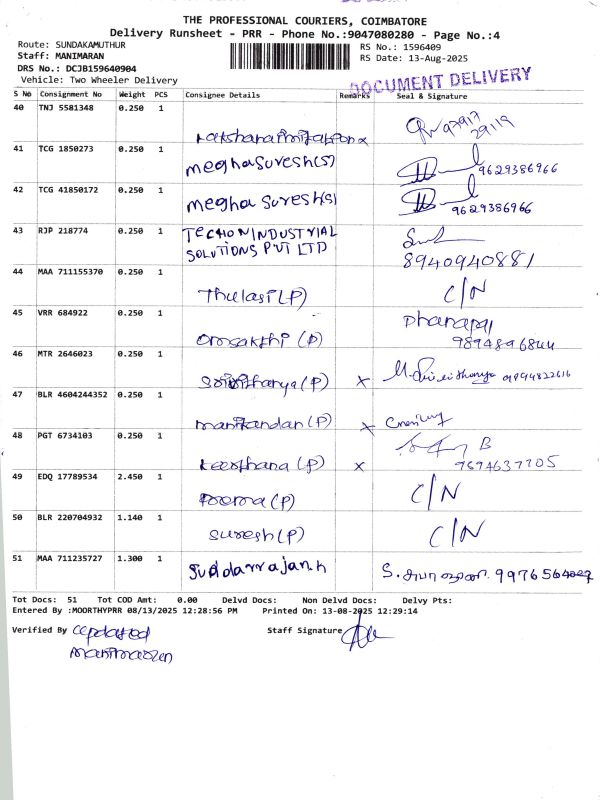 THE PROFESSIONAL COURIERS, COIMBATORE
Delivery Runsheet - PRR - Phone No.:9047080280 - Page No.:4
Route: SUNDAKAMUTHUR
RS No.: 1596409
Staff: MANIMARAN
RS Date: 13-Aug-2025
DRS No.: DCJB159640904
Vehicle: Two Wheeler Delivery
DOCUMENT DELIVERY
S No Consignment No Weight PCS Consignee Details Remarks Seal & Signature
40 TNJ 5581348 0.250 1
x
41 TCG 1850273 0.250 1
Megha Suresh(S) 9629386966
42 TCG 41850172 0.250 1
Megha Suresh(S) 9629386966
43 RJP 218774 0.250 1
TECHON INDUSTRIAL
SOLUTIONS PVT LTD 8940940881
44 MAA 711155370 0.250 1
Thulasi (P) C/N
45 VRR 684922 0.250 1
Omsakthi (P) 9894896844
46 MTR 2646023 0.250 1
(P) x
47 BLR 4604244352 0.250 1
manikandan (P) x
48 PGT 6734103 0.250 1
keerthana (P) x B
7594637705
49 EDQ 17789534 2.450 1
(P) C/N
50 BLR 220704932 1.140 1
Suresh (P) C/N
51 MAA 711235727 1.300 1
Tot Docs: 51 Tot COD Amt: 0.00 Delvd Docs: Non Delvd Docs: Delvy Pts:
Entered By :MOORTHYPRR 08/13/2025 12:28:56 PM Printed On: 13-08-2025 12:29:14
Verified By updated Staff Signature
manimaran